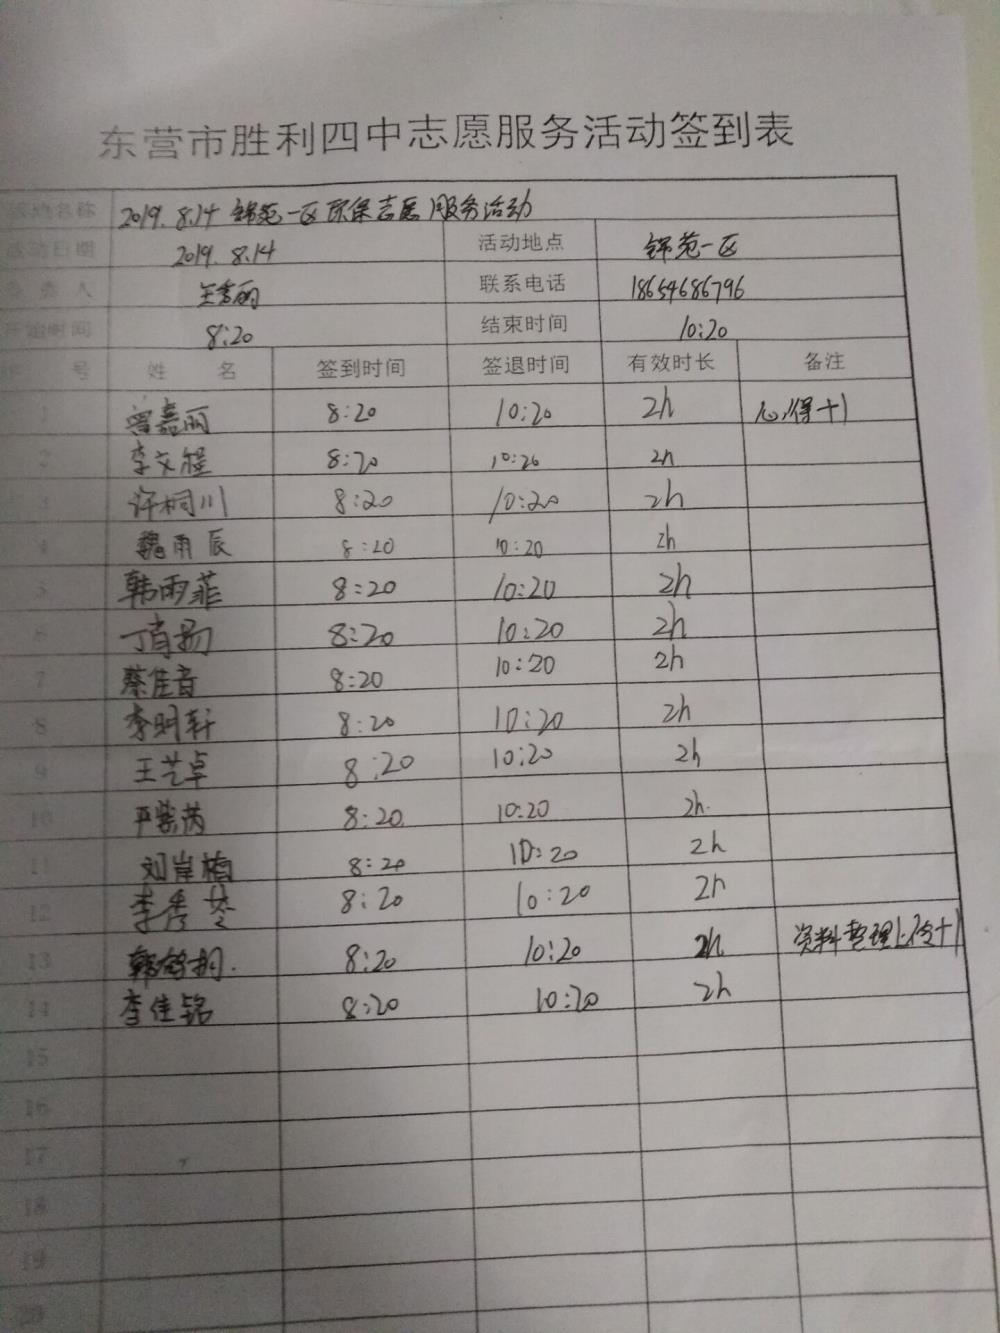 东营市胜利四中志愿服务活动签到表
活动名称 2019.8.14 锦苑一区环保志愿服务活动
活动日期 2019.8.14 活动地点 锦苑一区
负责人 王秀丽 联系电话 18654686796
开始时间 8:20 结束时间 10:20
序号 姓名 签到时间 签退时间 有效时长 备注
1 曾嘉丽 8:20 10:20 2h 心得+1
2 李文程 8:20 10:20 2h
3 许桐川 8:20 10:20 2h
4 魏雨辰 8:20 10:20 2h
5 韩雨菲 8:20 10:20 2h
6 丁肖扬 8:20 10:20 2h
7 蔡佳音 8:20 10:20 2h
8 李明轩 8:20 10:20 2h
9 王艺卓 8:20 10:20 2h
10 严紫芮 8:20 10:20 2h.
11 刘岸梅 8:20 10:20 2h
12 李秀 8:20 10:20 2h
13 韩 桐. 8:20 10:20 2h 资料整理 +1
14 李佳铭 8:20 10:20 2h
15
16
17
18
19
20